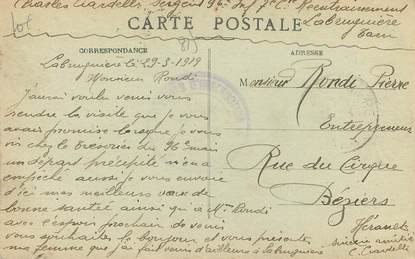 Charles Ciardelli, Sergent 96e Inf 7e Cie Recentrainement
Labruguière
Tarn
CARTE POSTALE
CORRESPONDANCE
ADRESSE
Labruguière le 29-3-1919
Monsieur Rondi
J'aurai voulu venir vous
rendre la visite que je vous
avais promise lorsque je vous
vis chez le trésorier du 96e mais
un départ précipité m'en a
empêché aussi je vous envoie
d'ici mes meilleurs vœux de
bonne santé ainsi qu'à Mme Rondi
avec l'espoir prochain de venir
vous souhaiter le bonjour et vous présenter
ma femme que j'ai fait venir d'ailleurs à Labruguière
Monsieur Rondi Pierre
Entrepreneur
Rue du Cirque
Béziers
Hérault
sincère amitié
C. Ciardelli